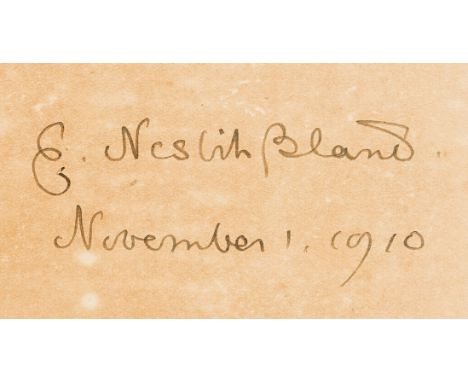 E. Nesbit Bland.
November 1. 1910